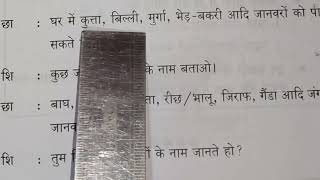 छा : घर में कुत्ता, बिल्ली, मुर्गा, भेड़-बकरी आदि जानवरों को पा
सकते
शि : कुछ के नाम बताओ।
छा : बाघ, रीछ/भालू, जिराफ, गैंडा आदि जंग
जानव
शि : तुम के नाम जानते हो?